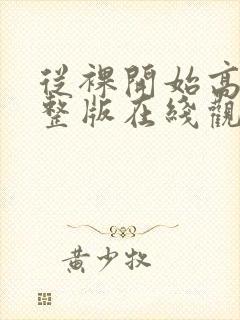 從裸開始高
整版在綫觀
黃少牧